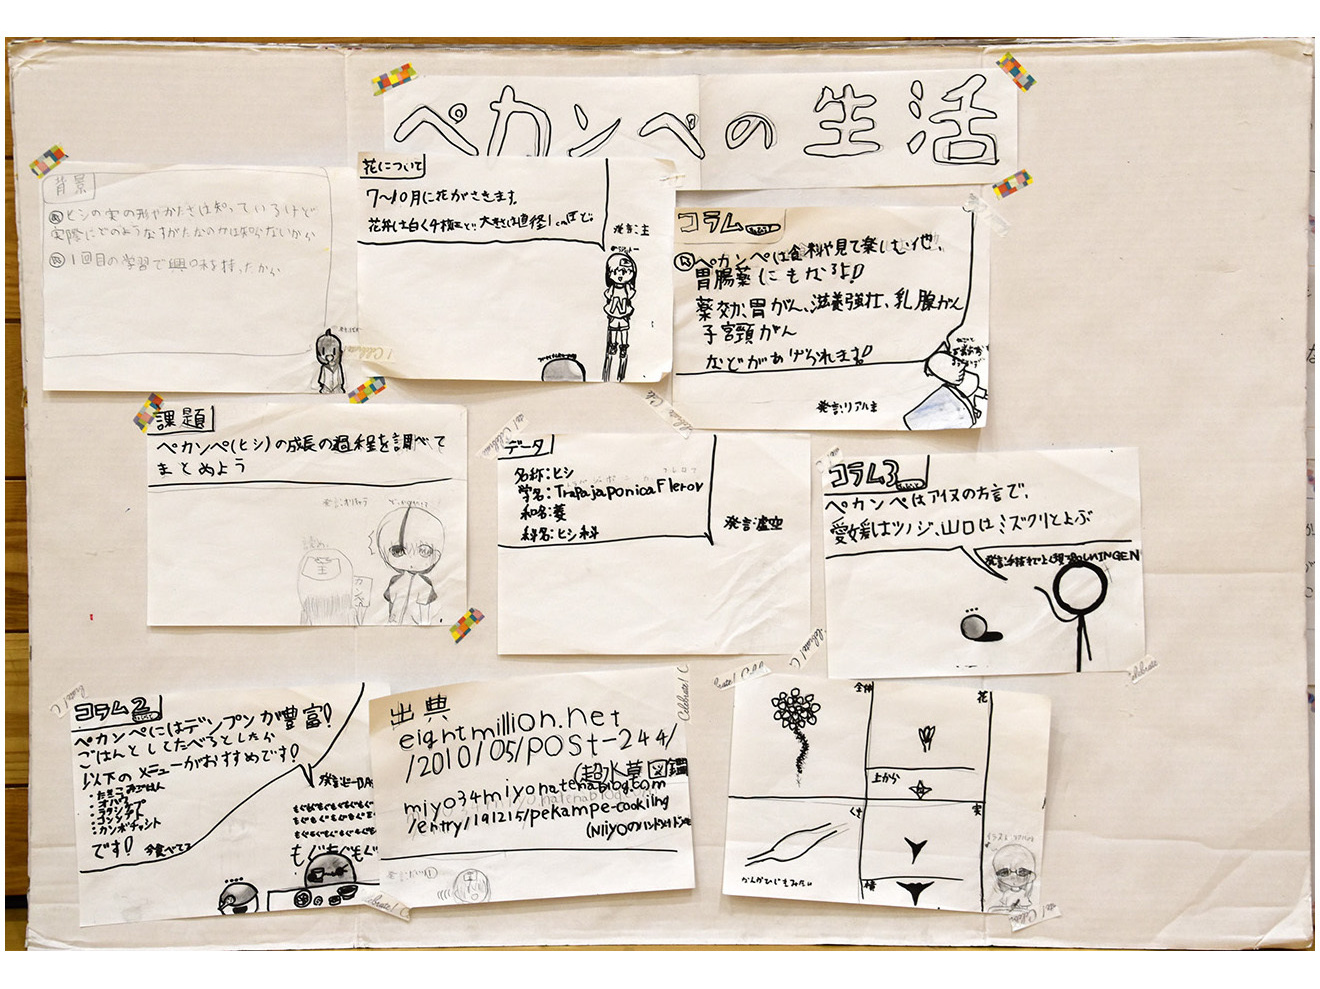 ペカンペの生活
背景
ヒシの実の形やかたさは知っているけど
実際にどのようなすがたなのかは知らないから
1回目の学習で興味を持ったから
花について
7〜10月に花がさきます。
花弁は白く4枚
大きさは直径1
発言:主
コラム
ペカンペは食料や見て楽しむ他、
胃腸薬にもなるよ!
薬効、胃がん、滋養強壮、乳腺がん
子宮頸がん
などがあげられます!
発言:リアル主
課題
ペカンペ(ヒシ)の成長の過程を調べて
まとめよう
データ
名称:ヒシ
学名:Trapa japonica Flerov
和名:菱
科名:ヒシ科
発言:虚空
コラム3
ペカンペはアイヌの方言で、
愛媛はツノジ、山口はミズクリとよぶ
コラム2
ペカンペにはデンプンが豊富!
ごはんとしてたべるとしたら
以下のメニューがおすすめです!
です! 今食べてる
もぐもぐもぐ
出典
eightmillion.net
/2010/05/post-244/
(超水草図鑑
miyo34miyo.hatenablog.com
/entry/191215/pekampe-cooking
全体
花
上から
くき
実
横